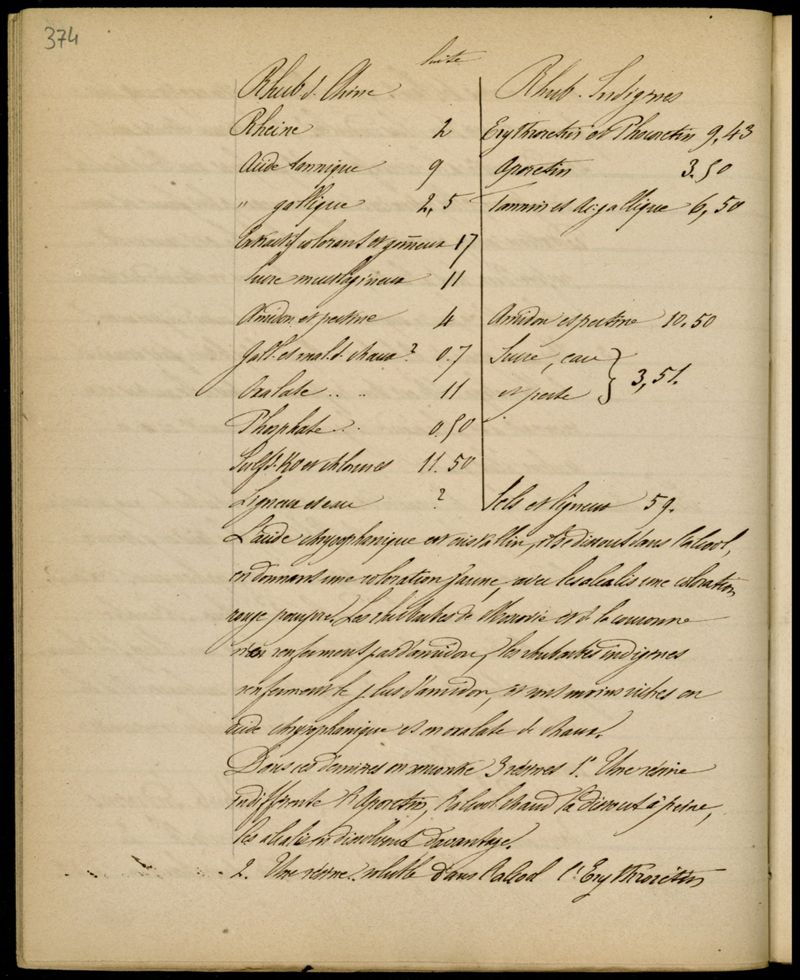 374
suite
Rhub. d. Chine Rhub. Indignes
Rheine 2 Erythroretin et Pheoretin 9,43
Acide tannique 9 Aporetin 3.50
" gallique 2,5 Tannin et Ac: gallique 6,50
Extractif colorant et gommeux 17
Sucre mucilagineux 11
Amidon et pectine 4 Amidon et pectine 10.50
Gall. et mal. d. chaux ? 0.7 Sucre, eau
Oxalate .. .. 11 et perte } 3,51.
Phosphate .. 0.50
Sulf. d. KO et chlorures 11.50
Ligneux et eau ? Sels et ligneux 59.
L'acide chrysophanique est cristallin, il se dissout dans l'alcool,
en donnant une coloration jaune, avec les alcalis une coloration
rouge pourpre. Les rhubarbes de Moscovie et d. la couronne
n'en renferment pas d'amidon, les rhubarbes indignes
renferment le plus d'amidon, et sont moins riches en
acide chrysophanique et en oxalate de chaux.
Dans ces dernières on rencontre 3 résines 1° Une résine
indifférente l'Aporetin, l'alcool chaud la dissout à peine,
les alcalis en dissolvent davantage.
2. Une résine soluble dans l'alcool l'Erythroretin